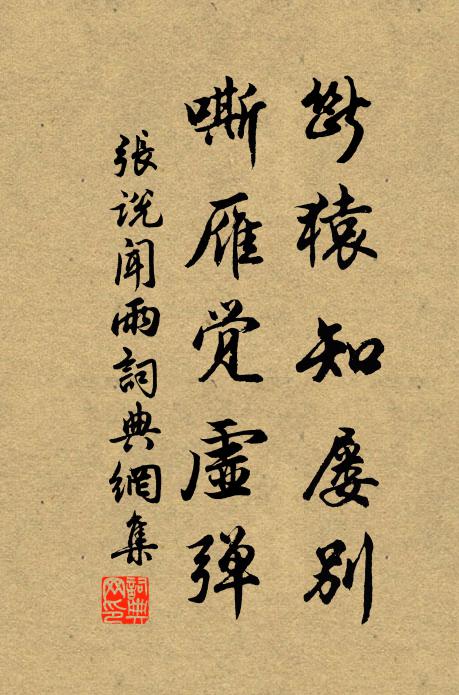 断猿知屡别
嘶雁觉虚弹
張说闻雨詞典網集
詞典网印